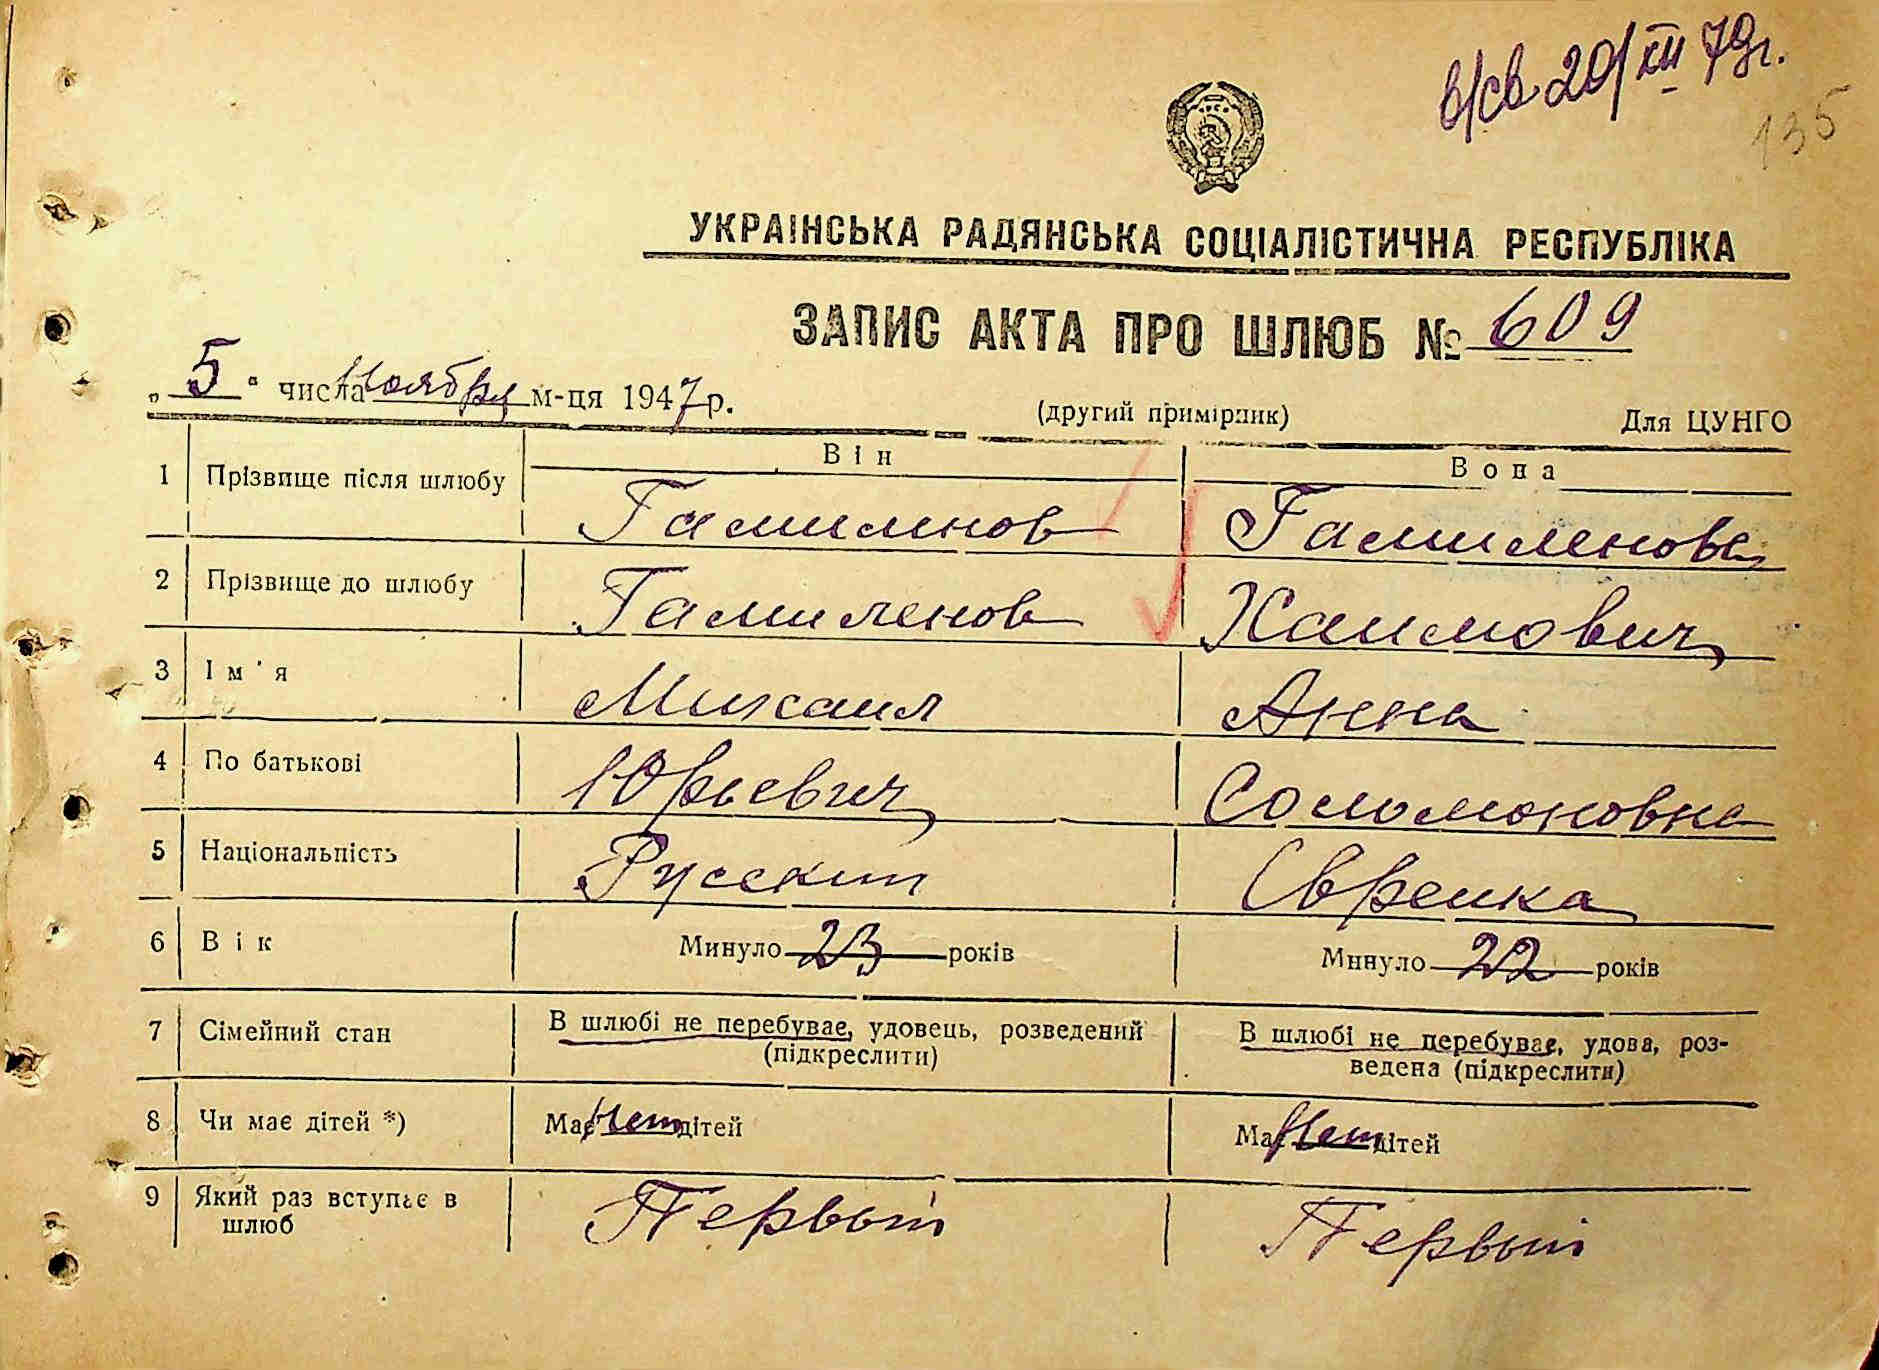 в/св 20/XII 79г.
135
УКРАЇНСЬКА РАДЯНСЬКА СОЦІАЛІСТИЧНА РЕСПУБЛІКА
ЗАПИС АКТА ПРО ШЛЮБ № 609
„ 5 “ числа Ноября м-ця 1947 р.
(другий примірник) Для ЦУНГО
Він Вона
1 Прізвище після шлюбу Гамиленов Гамиленова
2 Прізвище до шлюбу Гамиленов Хаимович
3 Ім'я Михаил Анна
4 По батькові Юрьевич Соломоновна
5 Національність Русский Еврейка
6 Вік Минуло 23 років Минуло 22 років
7 Сімейний стан В шлюбі не перебуває, удовець, розведений В шлюбі не перебуває, удова, роз-
(підкреслити) ведена (підкреслити)
8 Чи має дітей *) Має Нет дітей Має Нет дітей
9 Який раз вступає в Первый Первый
шлюб